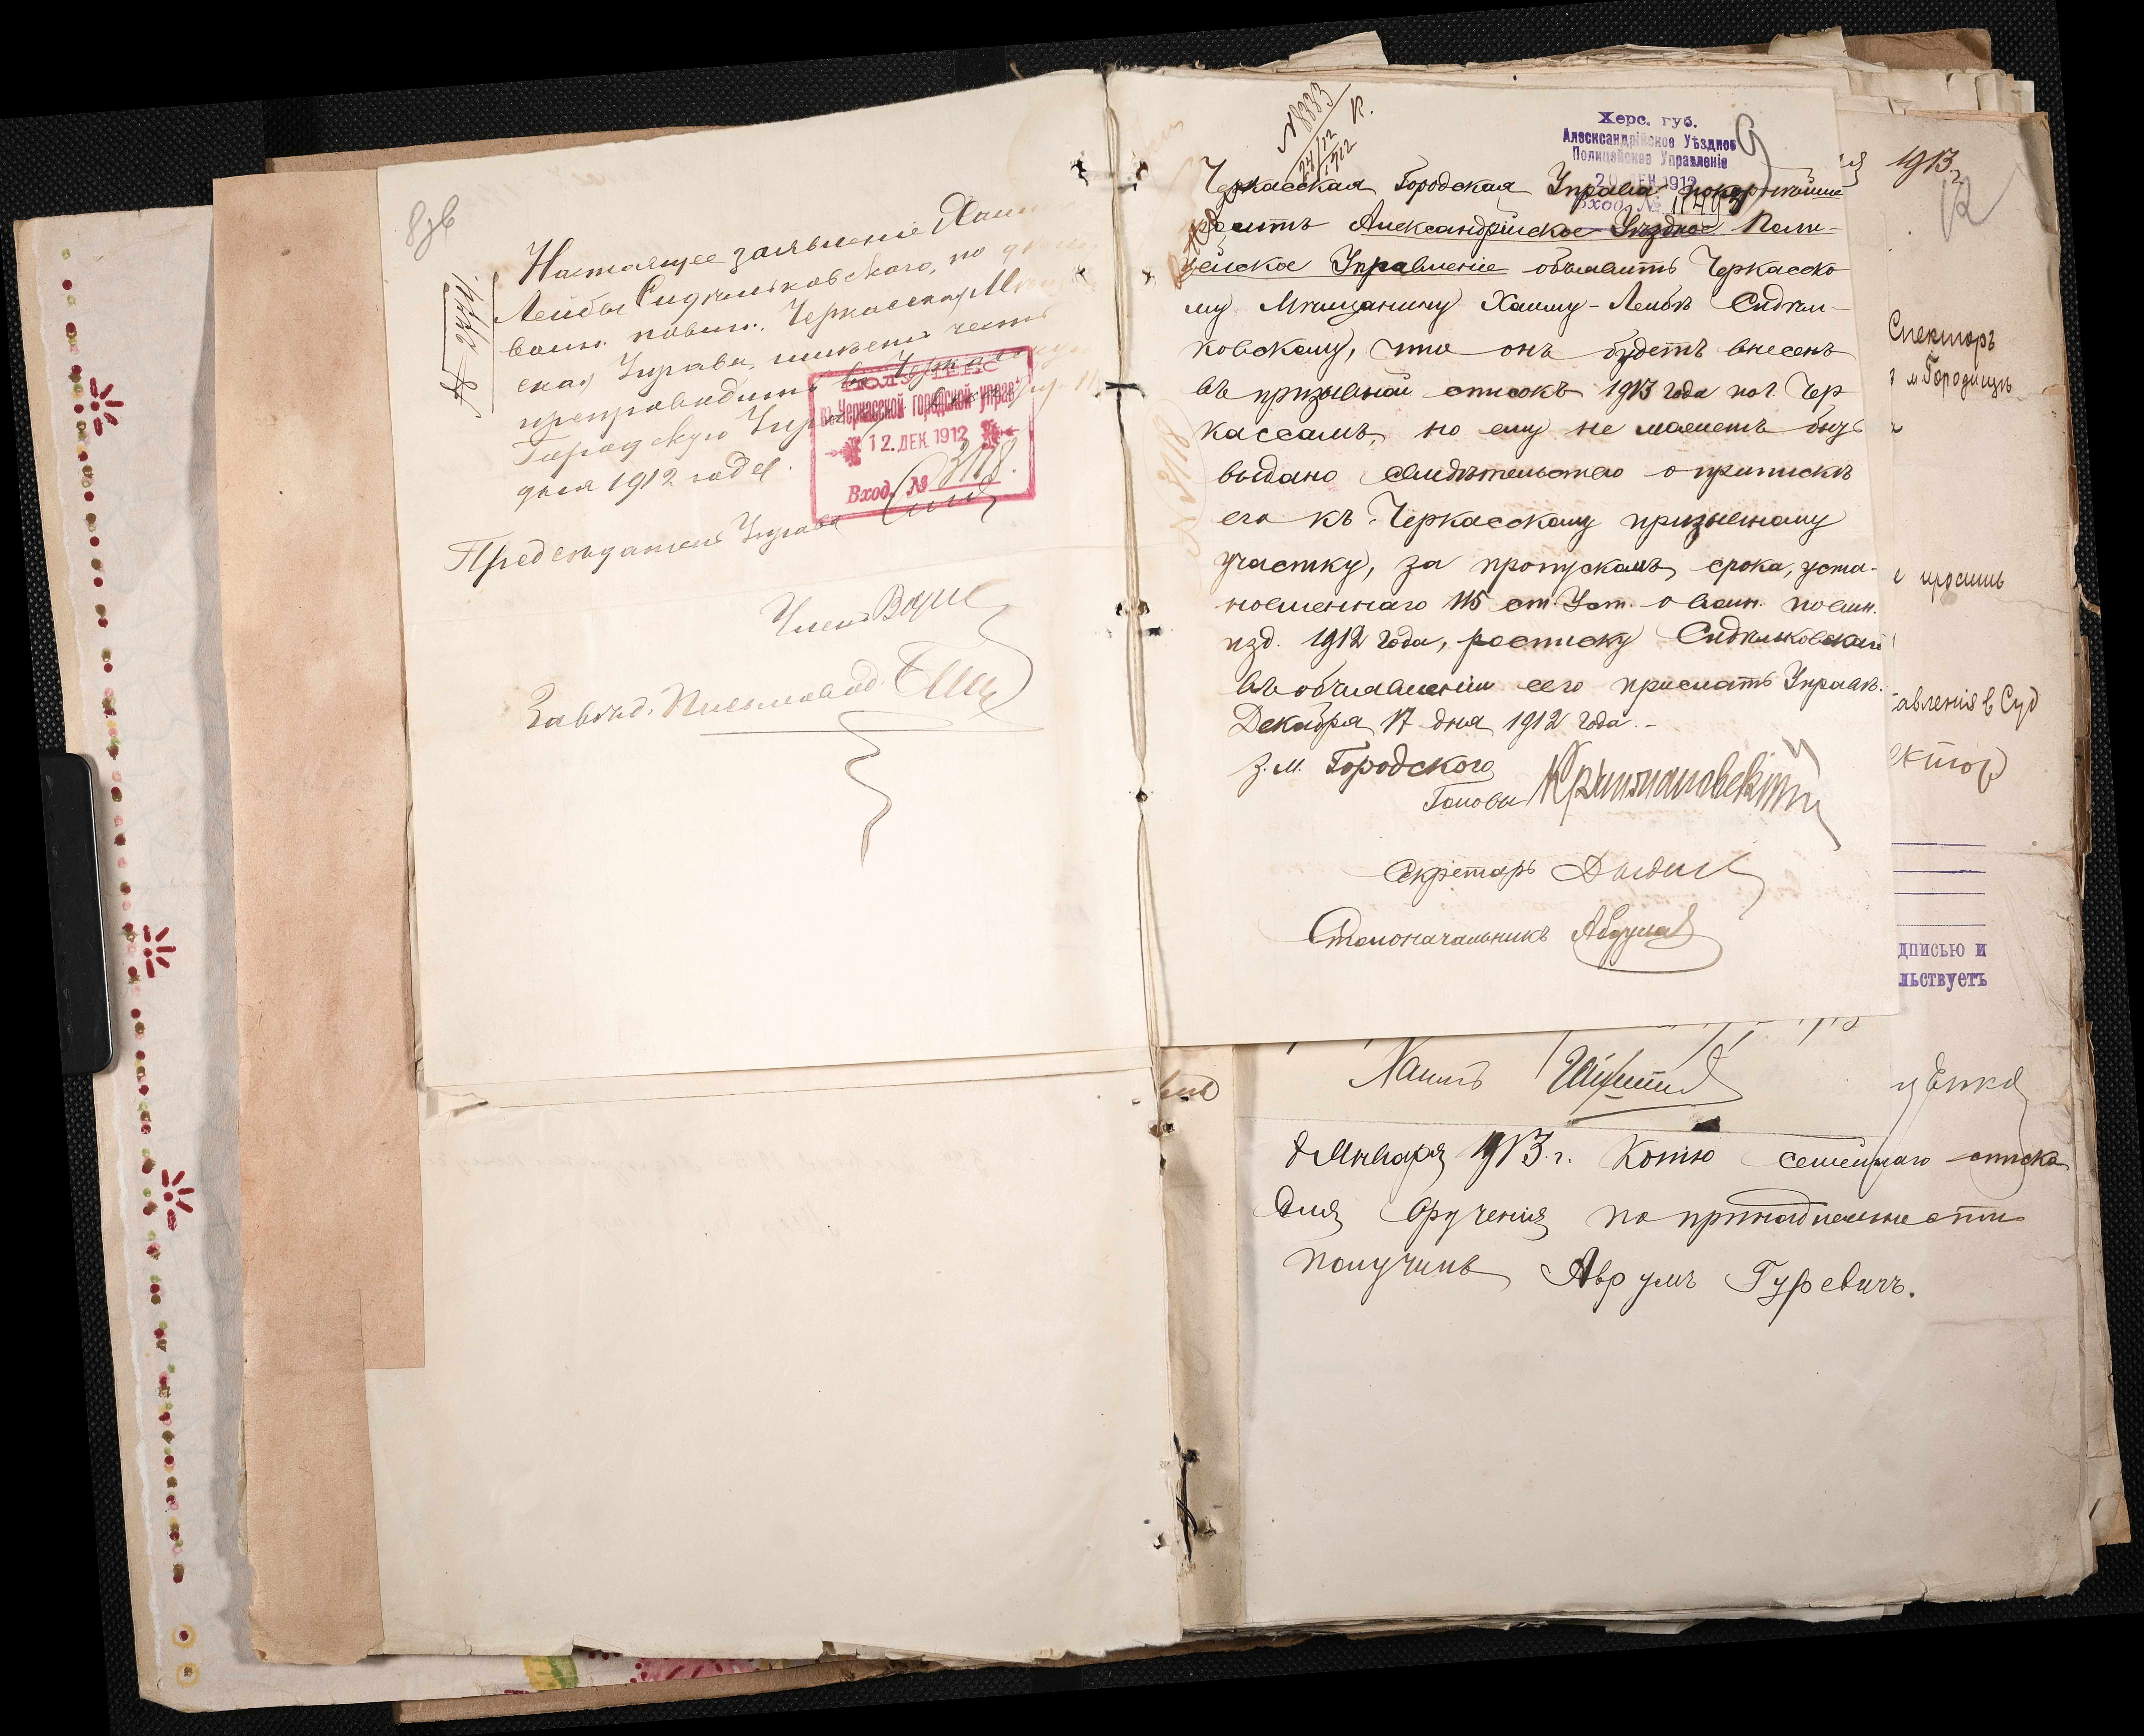 Настоящее заявленіе Хаим
Лейбы Сидельковского, по дѣлам
воин. повин. Черкасская Мѣщан
ская Управа, имѣетъ честь
препроводить въ Черкасскую
Городскую Управу
дня 1912 года.
Предсѣдатель Управы
Членъ
Завѣд. Письмовод.
ПОЛУЧЕНО
въ Черкасской городской управѣ
12. ДЕК 1912
Вход. № 3118.
№ 8883
24/12 1912
К.
Херс. губ.
Алескsандрійское Уѣздное
Полицейское Управленіе
20 ДЕК 1912
Вход. №
9
Черкасская Городская Управа покорнѣйше
проситъ Александрійское Уѣздное Поли-
цейское Управленіе объявить Черкасско
му Мѣщанину Хаиму-Лейбѣ Сидель-
ковскому, что онъ будетъ внесенъ
въ призывной списокъ 1913 года по г. Чер
кассамъ, но ему не можетъ быть
выдано свидѣтельство о припискѣ
его къ Черкасскому призывному
участку, за пропускомъ срока, уста-
новленнаго 115 ст. Уст. о воин. повин.
изд. 1912 года, росписку Сидельковскаго
въ объявленіи сего прислать Управѣ.
Декабря 17 дня 1912 года.-
З.м. Городского
Головы
Секретарь
Столоначальникъ
№ 3118
1913 г.
12
Спекторъ
м. Городищъ
просишь
авленія в Суд
дписью и
льствуетъ
Хаимъ
8 Января 1913 г. Копію семейнаго списка
для врученія по принадлежности
получилъ Аврумъ Гуревичъ.